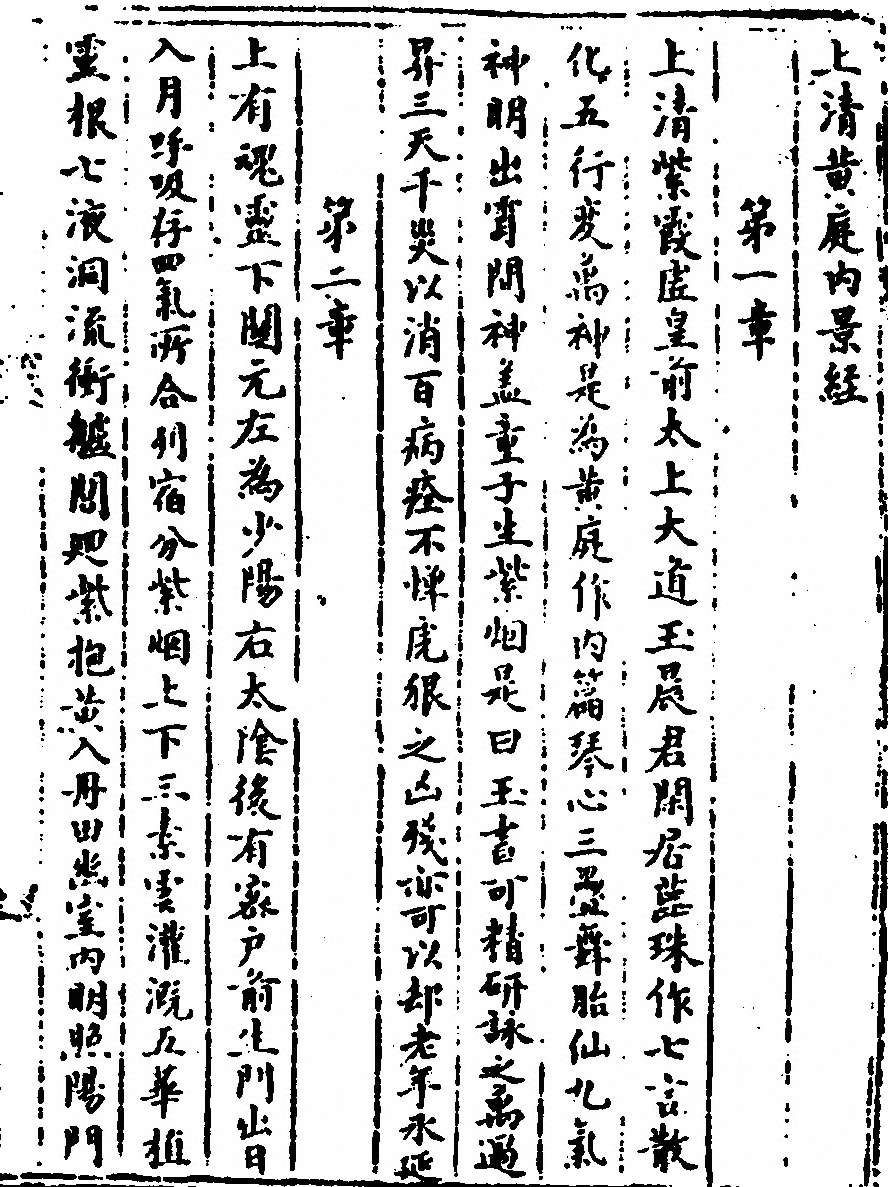 上清黄庭内景経
第一章
上清紫霞虚皇前太上大道玉晨君閑居蕊珠作七言散
化五行変萬神是為黄庭作内篇琴心三疊舞胎仙九氣
神明出霄間神盖童子生紫烟是曰玉書可精研詠之萬過
昇三天千災以消百病痊不憚虎狼之凶殘亦可以却老年永延
第二章
上有魂靈下關元左為少陽右太陰後有密户前生門出日
入月呼吸存四氣所合列宿分紫烟上下三素雲灌溉五華植
靈根七液洞流衝驢間廻紫抱黄入丹田幽室内明照陽門